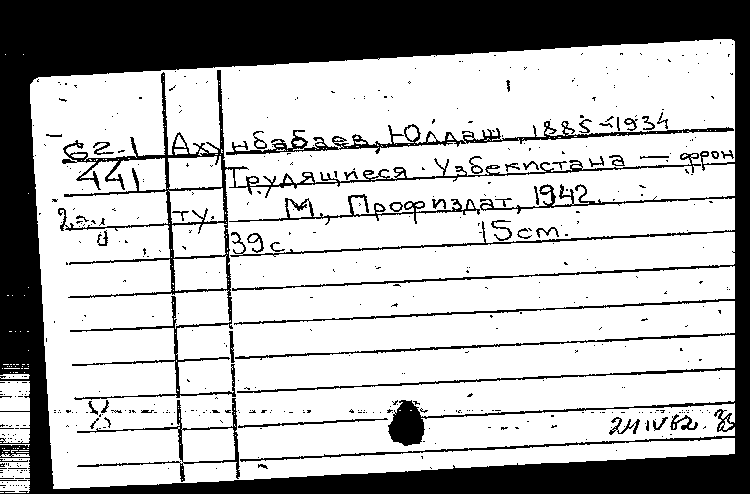 G2-1 Ахунбабаев, Юлдаш, 1885-1934
441 Трудящиеся Узбекистана — фрон
ту. М., Профиздат, 1942.
39с. 15cm.